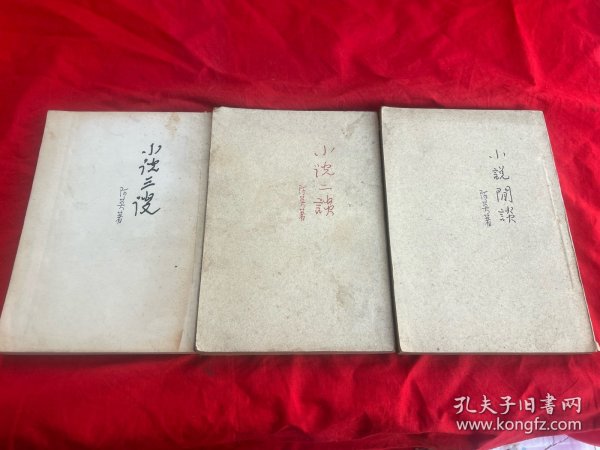 小说三谈
阿英著
小说二談
阿英著
小說閒談
阿英著
孔夫子旧書网
www.kongfz.com